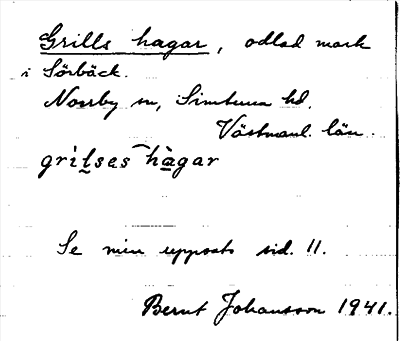 Grills hagar, odlad mark
i Sörbäck.
Norrby sn, Simtuna hd.
Västmanl. län.
gri̇̀l̰ses hàgar
Se min uppsats sid. 11.
Bernt Johansson 1941.